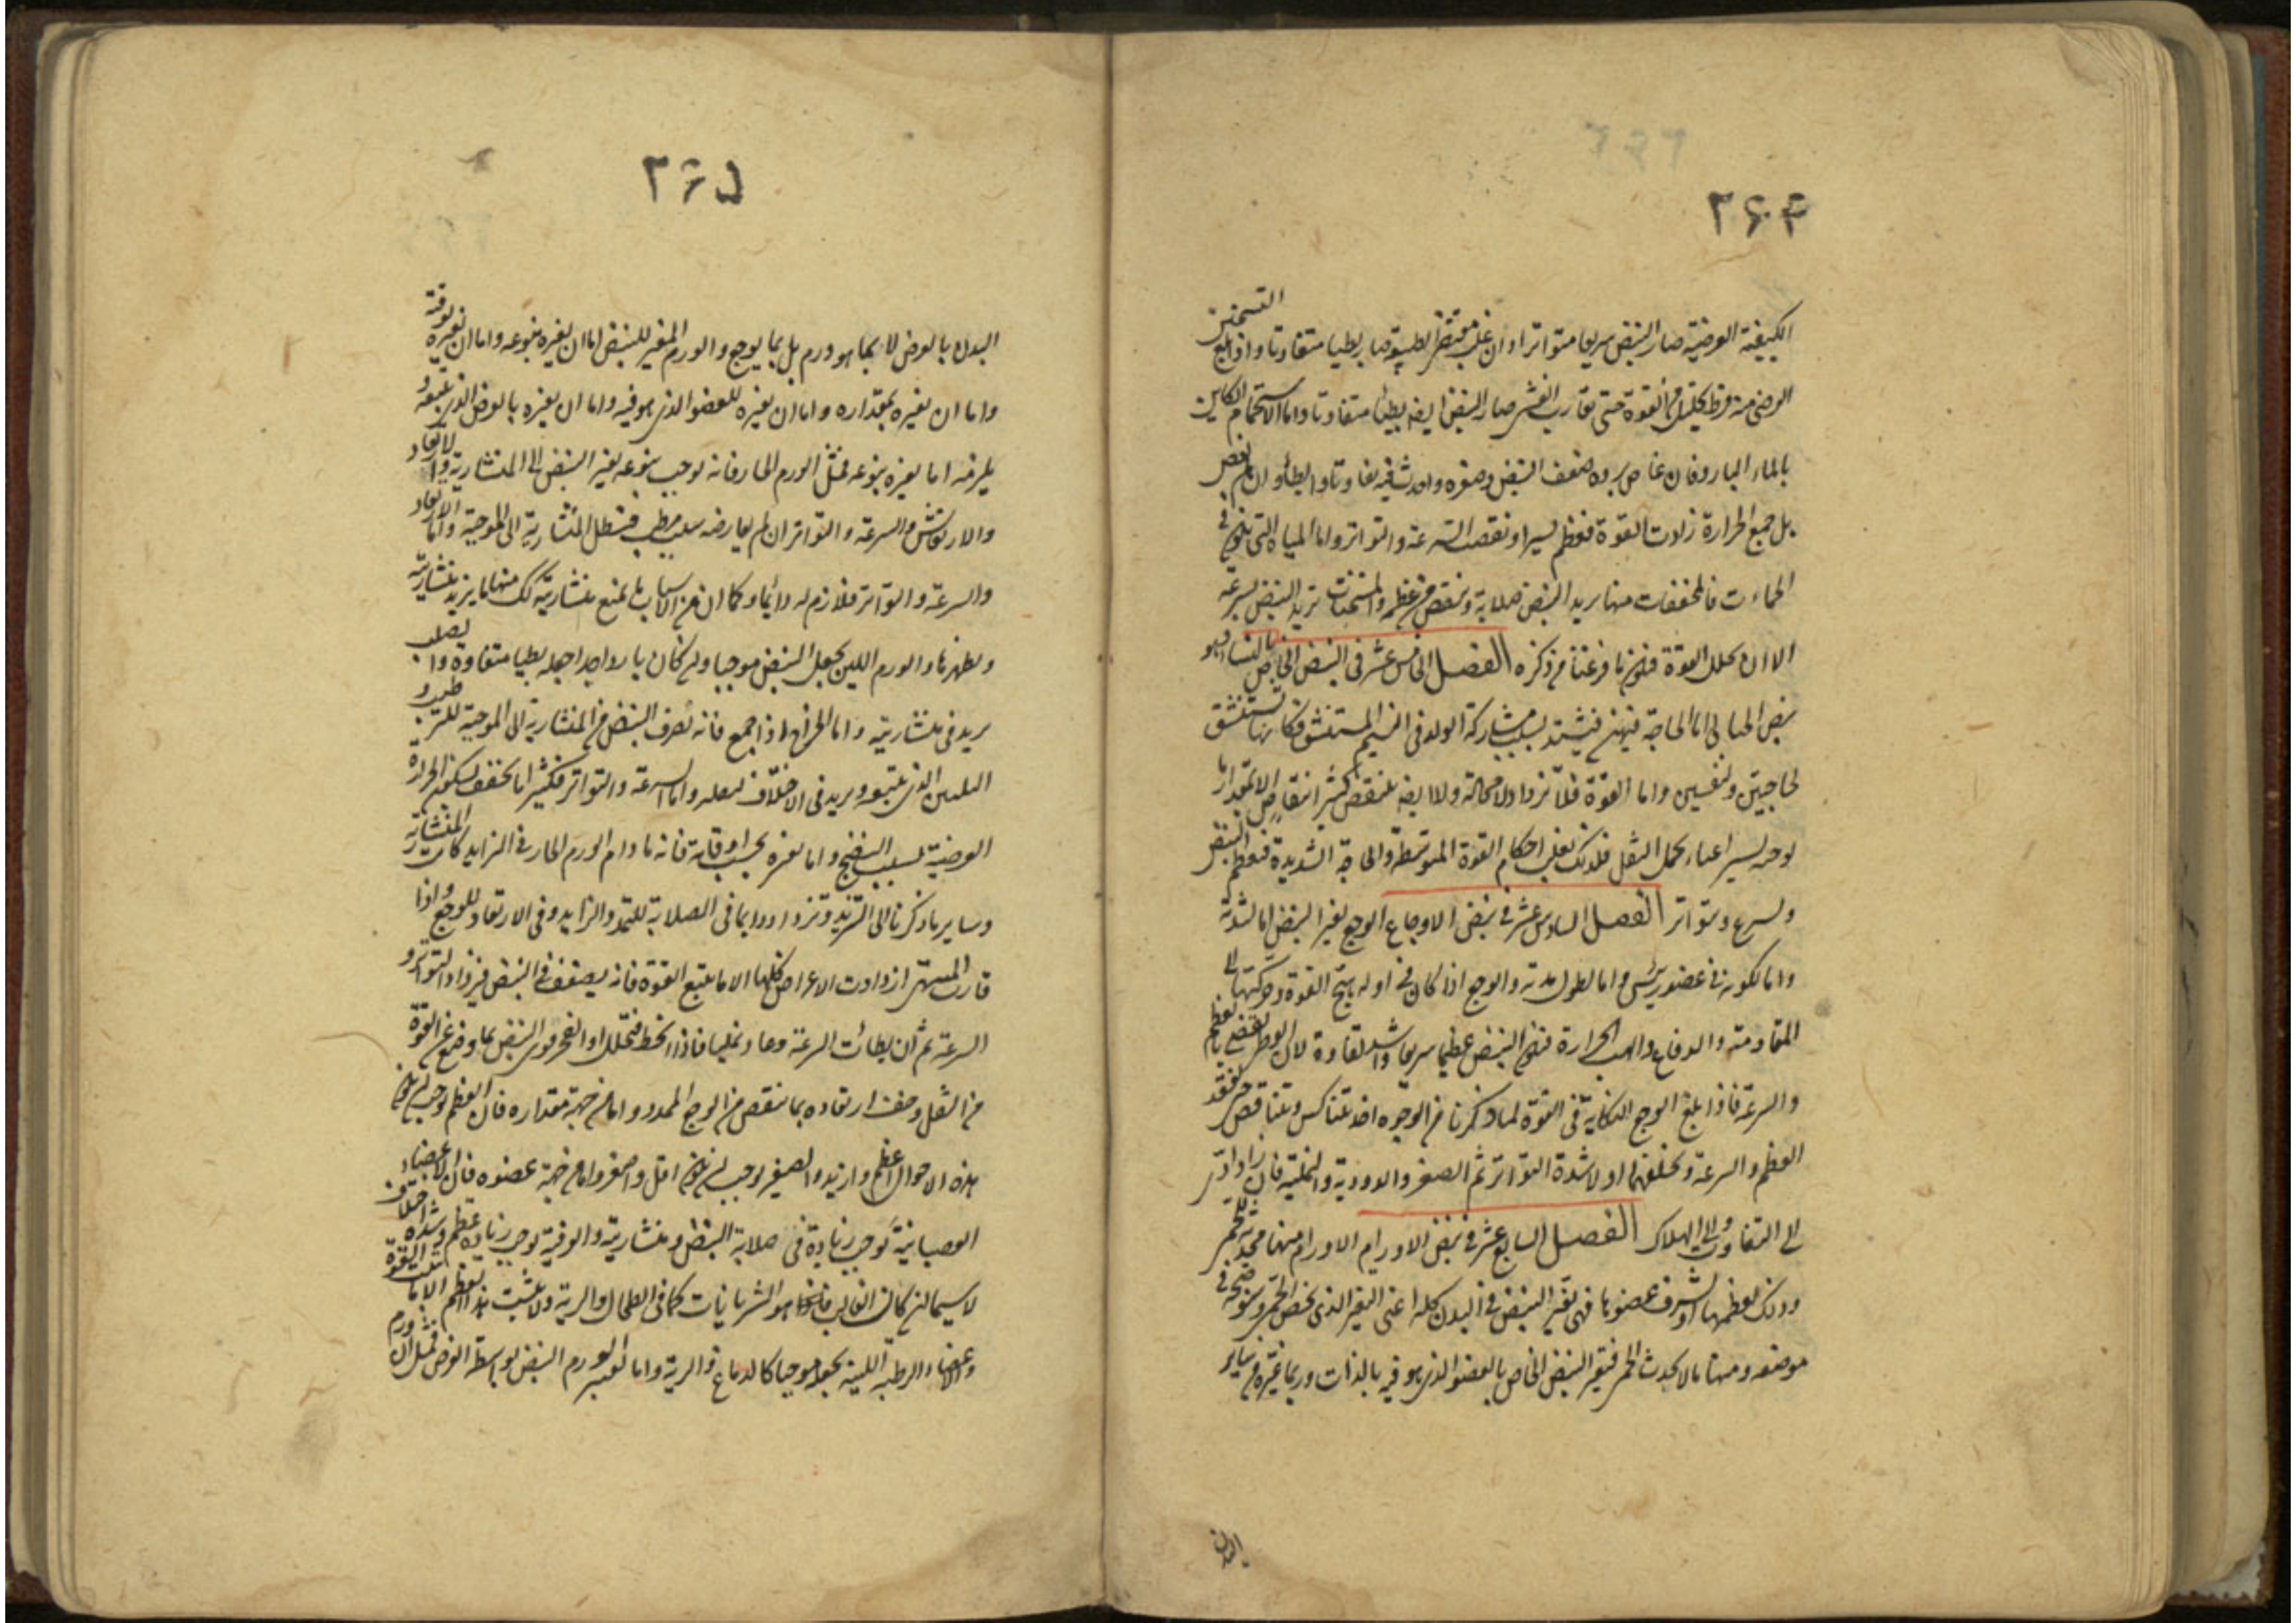 ۲۶۴
الكيفية العرضية صار النبض سريعا متواترا وان غلب مقتضى الطبيعة صار بطيا متفاوتا واذا بلغ التسخين
العرضى منه فرط تحليل من القوة حتى تقارب الغشى صار النبض ايضا بطيئا متفاوتا واما الاستحمام الكاين
بالماء البارد فان غاص برده ضعف النبض وصغره واحدث فيه تفاوتا وابطاء وان لم يغص
بل جمع الحرارة زادت القوة فعظم يسيرا ونقصت السرعة والتواتر واما المياه التى تكون فى
الحماءت فالمجففات منها تزيد النبض صلابة وتنقص من عظمه والمسخنات تزيد النبض سرعة
الا ان تحلل القوة فيكون ما فرغنا من ذكره الفصل الخامس عشر فى النبض الخاص بالنساء وهو
نبض الحبالى اما الحاجة فيهن فتشتد بسبب مشاركة الولد فى النسيم المستنشق فكانها تستنشق
لحاجتين ولنفسين واما القوة فلا تزداد لا محالة ولا ايضا تنتقص كثير انتقاص الا بمقدار ما
يوجبه يسير اعياء بحمل الثقل فلذلك تغلب احكام القوة المتوسطة والحاجة الشديدة فيعظم النبض
ويسرع ويتواتر الفصل السادس عشر فى نبض الاوجاع الوجع يغير النبض اما لشدته
واما لكونه فى عضو رئيس واما لطول مدته والوجع اذا كان فى اوله يهيج القوة وحركتها الى
المقاومة والدفاع والهب الحرارة فيكون النبض عظيما سريعا واشد تفاوتا لان الوطر يفضى بالعظم
والسرعة فاذا بلغ الوجع النكاية فى القوة لما ذكرنا من الوجوه اخذ يتناكس ويتناقص حتى يفقد
العظم والسرعة وتخلفهما اولا شدة التواتر ثم الصغر والدودية والنملية فان زاد ادى
الى التفاوت والى الهلاك الفصل السابع عشر فى نبض الاورام الاورام منها محدثة للحمى
وذلك لعظمها او لشرف عضوها فهى تغير النبض فى البدن كله اعنى التغير الذى يخص الحمى وسنوضحه فى
موضعه ومنها ما لا يحدث الحمى فيغير النبض الخاص بالعضو الذى هو فيه بالذات وربما غيره من ساير
البدن
۲۶۵
البدن بالعرض لا بما هو ورم بل بما يوجع والورم المغير للنبض اما ان يغيره بنوعه واما ان يغيره بوقته
واما ان يغيره بمقداره واما ان يغيره للعضو الذى هو فيه واما ان يغيره بالعرض الذى يتبعه و
يلزمه اما تغيره بنوعه فمثل الورم الحار فانه يوجب بنوعه تغير النبض الى المنشارية والارتعاد
والارتعاش والسرعة والتواتر ان لم يعارضه سبب مرطب فتبطل المنشارية الى الموجية واما الارتعاد
والسرعة والتواتر فلازم له دائما وكما ان من الاسباب ما يمنع منشاريته كذلك منها ما يزيد منشاريته
ويظهرها والورم اللين يجعل النبض موجيا وان كان باردا جدا جعله بطيا متفاوتا والصلب
يزيد فى منشاريته واما الخراج اذا جمع فانه يصرف النبض من المنشارية الى الموجية للترطيب و
التليين الذى يتبعه ويزيد فى الاختلاف لثقله واما السرعة والتواتر فكثيرا ما تخف لسكون الحرارة
العرضية بسبب النضج واما تغيره بحسب اوقاته فانه ما دام الورم الحار فى التزايد كانت المنشارية
وساير ما ذكرنا الى التزيد وتزداد دايما فى الصلابة للتمدد الزايد وفى الارتعاد للوجع واذا
قارب المنتهى ازدادت الاعراض كلها الا ما يتبع القوة فانه يضعف فى النبض فيزداد التواتر و
السرعة ثم ان طالت السرعة وعاد نمليا فاذا انحط فتحلل او انفجر قوى النبض بما وضع عن القوة
من الثقل وخف ارتعاده بما ينقص من الوجع الممدد واما من جهة مقداره فان العظيم يوجب ان تكون
هذه الاحوال اعظم وازيد والصغير يوجب ان تكون اقل واصغر واما من جهة عضوه فان الاعضاء
العصبانية توجب زيادة فى صلابة النبض ومنشاريته والعرقية توجب زيادة عظم وشدة اختلاف
لا سيما ان كان الغالب فيها هو الشريانات كما فى الطحال والرية ولا يثبت هذا العظم الا ما يثبت القوة
والاعضاء الرطبة اللينة تجعله موجيا كالدماغ والرية واما تغيير الورم النبض بواسطة العرض فمثل ان ورم